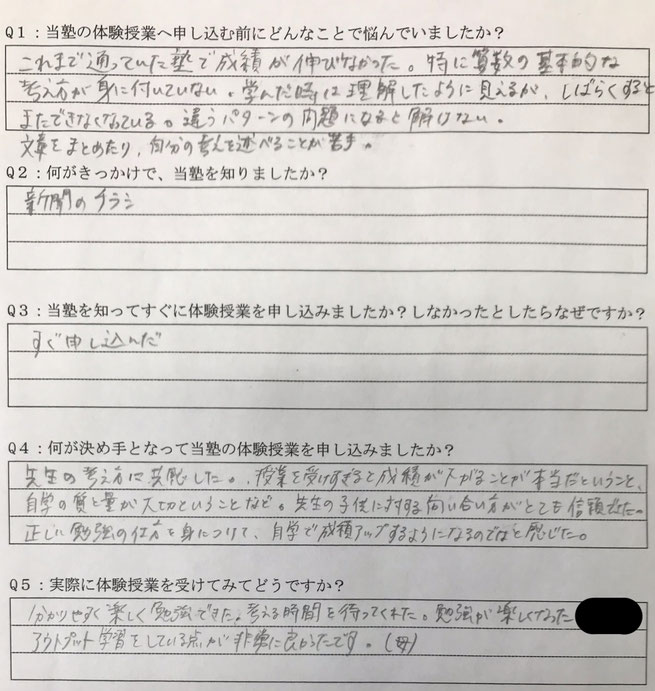 Q1：当塾の体験授業へ申し込む前にどんなことで悩んでいましたか？
これまで通っていた塾で成績が伸びなかった。特に算数の基本的な
考え方が身に付いていない。学んだ時は理解したように見えるが、しばらくすると
またできなくなっている。違うパターンの問題になると解けない。
文章をまとめたり、自分の考えを述べることが苦手。
Q2：何がきっかけで、当塾を知りましたか？
新聞のチラシ
Q3：当塾を知ってすぐに体験授業を申し込みましたか？しなかったとしたらなぜですか？
すぐ申し込んだ
Q4：何が決め手となって当塾の体験授業を申し込みましたか？
先生の考え方に共感した。授業を受けすぎると成績が下がることが本当だということ、
自学の質と量が大切ということなど。先生の子供に対する向い合い方がとても信頼できた。
正しい勉強の仕方を身につけて、自学で成績アップするようになるのではと感じた。
Q5：実際に体験授業を受けてみてどうですか？
分かりやすく楽しく勉強できた。考える時間を待ってくれた。勉強が楽しくなった
アウトプット学習をしている点が非常に良かったです。(母)